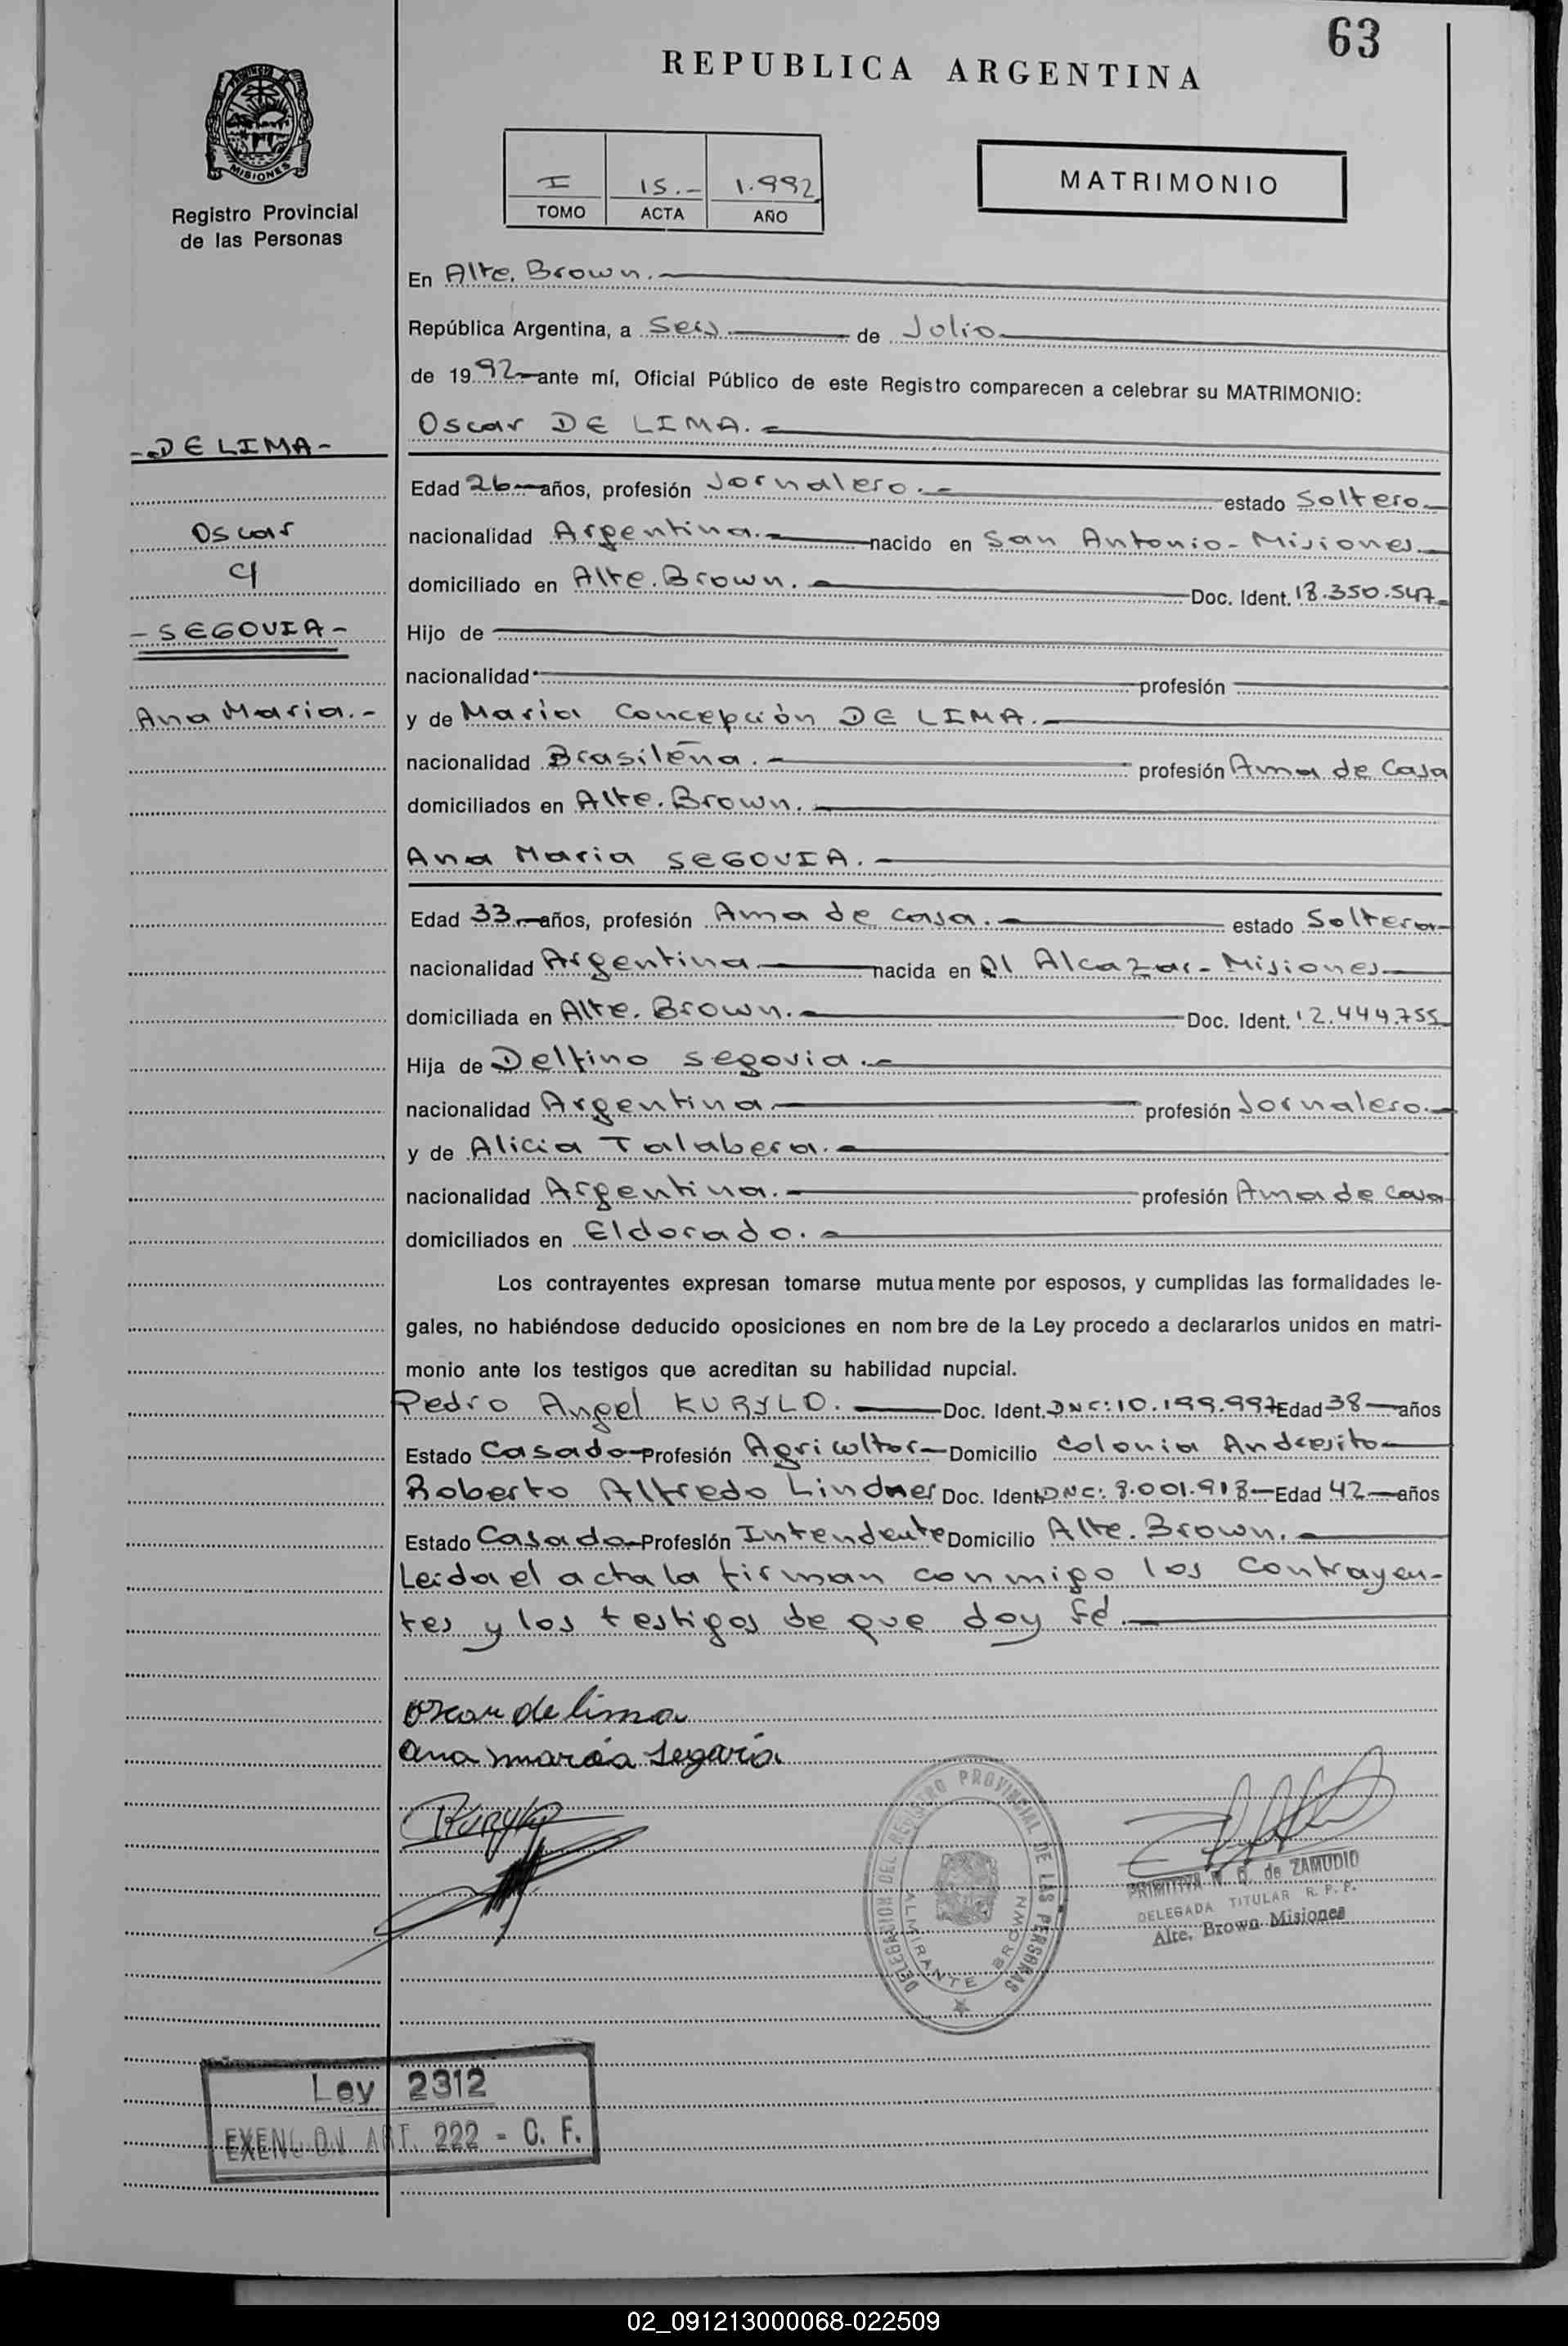 63
REPUBLICA ARGENTINA
PROVINCIA DE
MISIONES
Registro Provincial
de las Personas
I 15.- 1.992
TOMO ACTA AÑO
MATRIMONIO
En Alte. Brown.
República Argentina, a Seis. de Julio
de 1992 ante mí, Oficial Público de este Registro comparecen a celebrar su MATRIMONIO:
Oscar DE LIMA.-
-DE LIMA-
Oscar
c/
-SEGOVIA-
Ana Maria.-
Edad 26 años, profesión Jornalero.- estado Soltero
nacionalidad Argentina.- nacido en San Antonio-Misiones
domiciliado en Alte. Brown.- Doc. Ident. 18.350.547-
Hijo de
nacionalidad profesión
y de María Concepción DE LIMA.-
nacionalidad Brasileña.- profesión Ama de Casa
domiciliados en Alte. Brown.-
Ana Maria SEGOVIA.-
Edad 33.- años, profesión Ama de casa.- estado Soltera
nacionalidad Argentina nacida en El Alcazar-Misiones
domiciliada en Alte. Brown.- Doc. Ident. 12.444.755
Hija de Delfino Segovia.-
nacionalidad Argentina profesión Jornalero.-
y de Alicia Talabera.-
nacionalidad Argentina.- profesión Ama de Casa
domiciliados en Eldorado.-
Los contrayentes expresan tomarse mutuamente por esposos, y cumplidas las formalidades le-
gales, no habiéndose deducido oposiciones en nombre de la Ley procedo a declararlos unidos en matri-
monio ante los testigos que acreditan su habilidad nupcial.
Pedro Angel KURYLO.- Doc. Ident. DNI: 10.199.997 Edad 38 años
Estado Casado Profesión Agricultor Domicilio Colonia Andresito
Roberto Alfredo Lindner Doc. Ident. DNI: 8.001.918 Edad 42 años
Estado Casado Profesión Intendente Domicilio Alte. Brown.-
Leida el acta la firman conmigo los Contrayen-
tes y los testigos de que doy fé.
oscar de lima
ana maria segovia
Kurylo
DELEGACION DEL REGISTRO PROVINCIAL DE LAS PERSONAS
ALMIRANTE BROWN
PRIMITIVA de ZAMUDIO
DELEGADA TITULAR R. P. P.
Alte. Brown Misiones
Ley 2312
EXENCION ART. 222 - C. F.
02_091213000068-022509